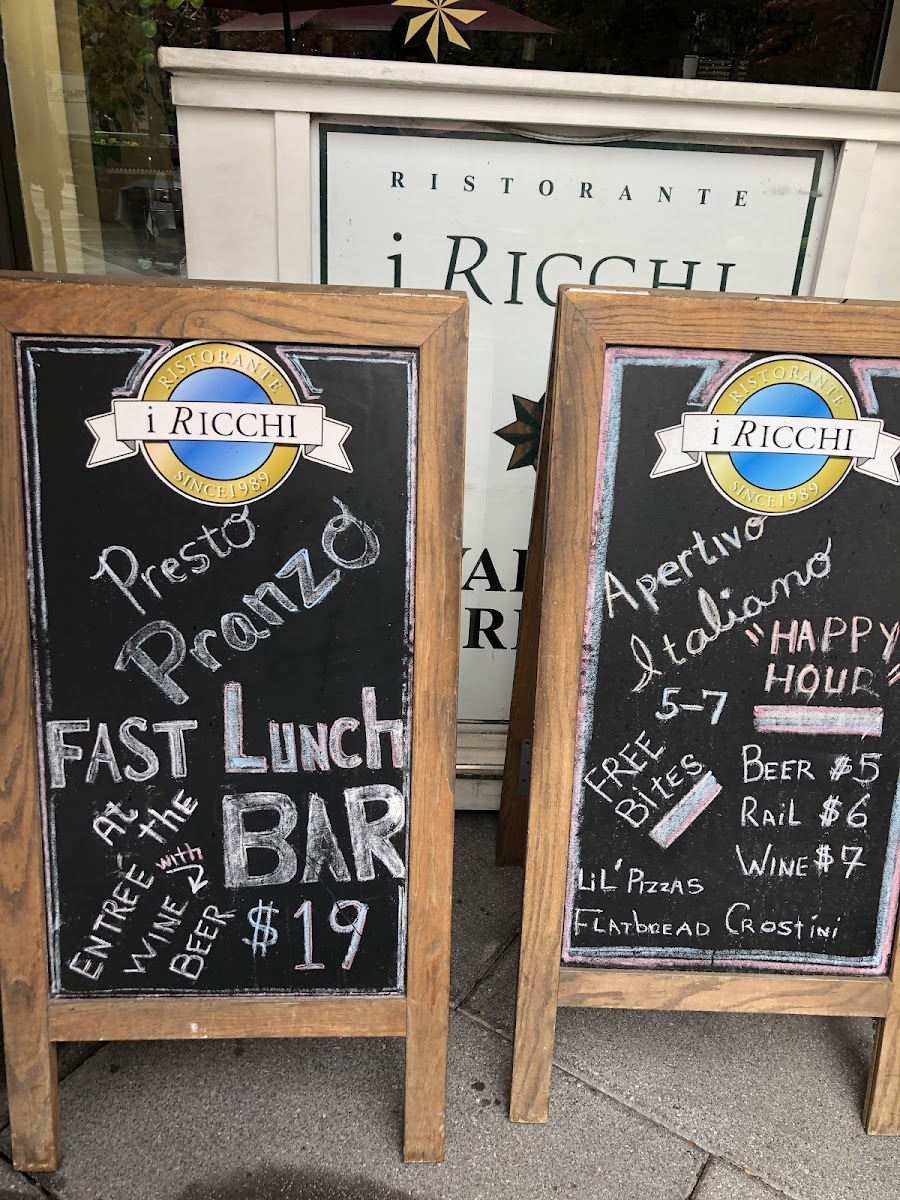 RISTORANTE
i RICCHI
RISTORANTE
i RICCHI
SINCE 1989
Presto
Pranzo
FAST LUNCH
At the BAR
ENTREE with
WINE
BEER
$19
RISTORANTE
i RICCHI
SINCE 1989
Apertivo
Italiano
"HAPPY
HOUR"
5-7
FREE
BITES
BEER $5
RAIL $6
WINE $7
LIL' PIZZAS
FLATBREAD CROSTINI